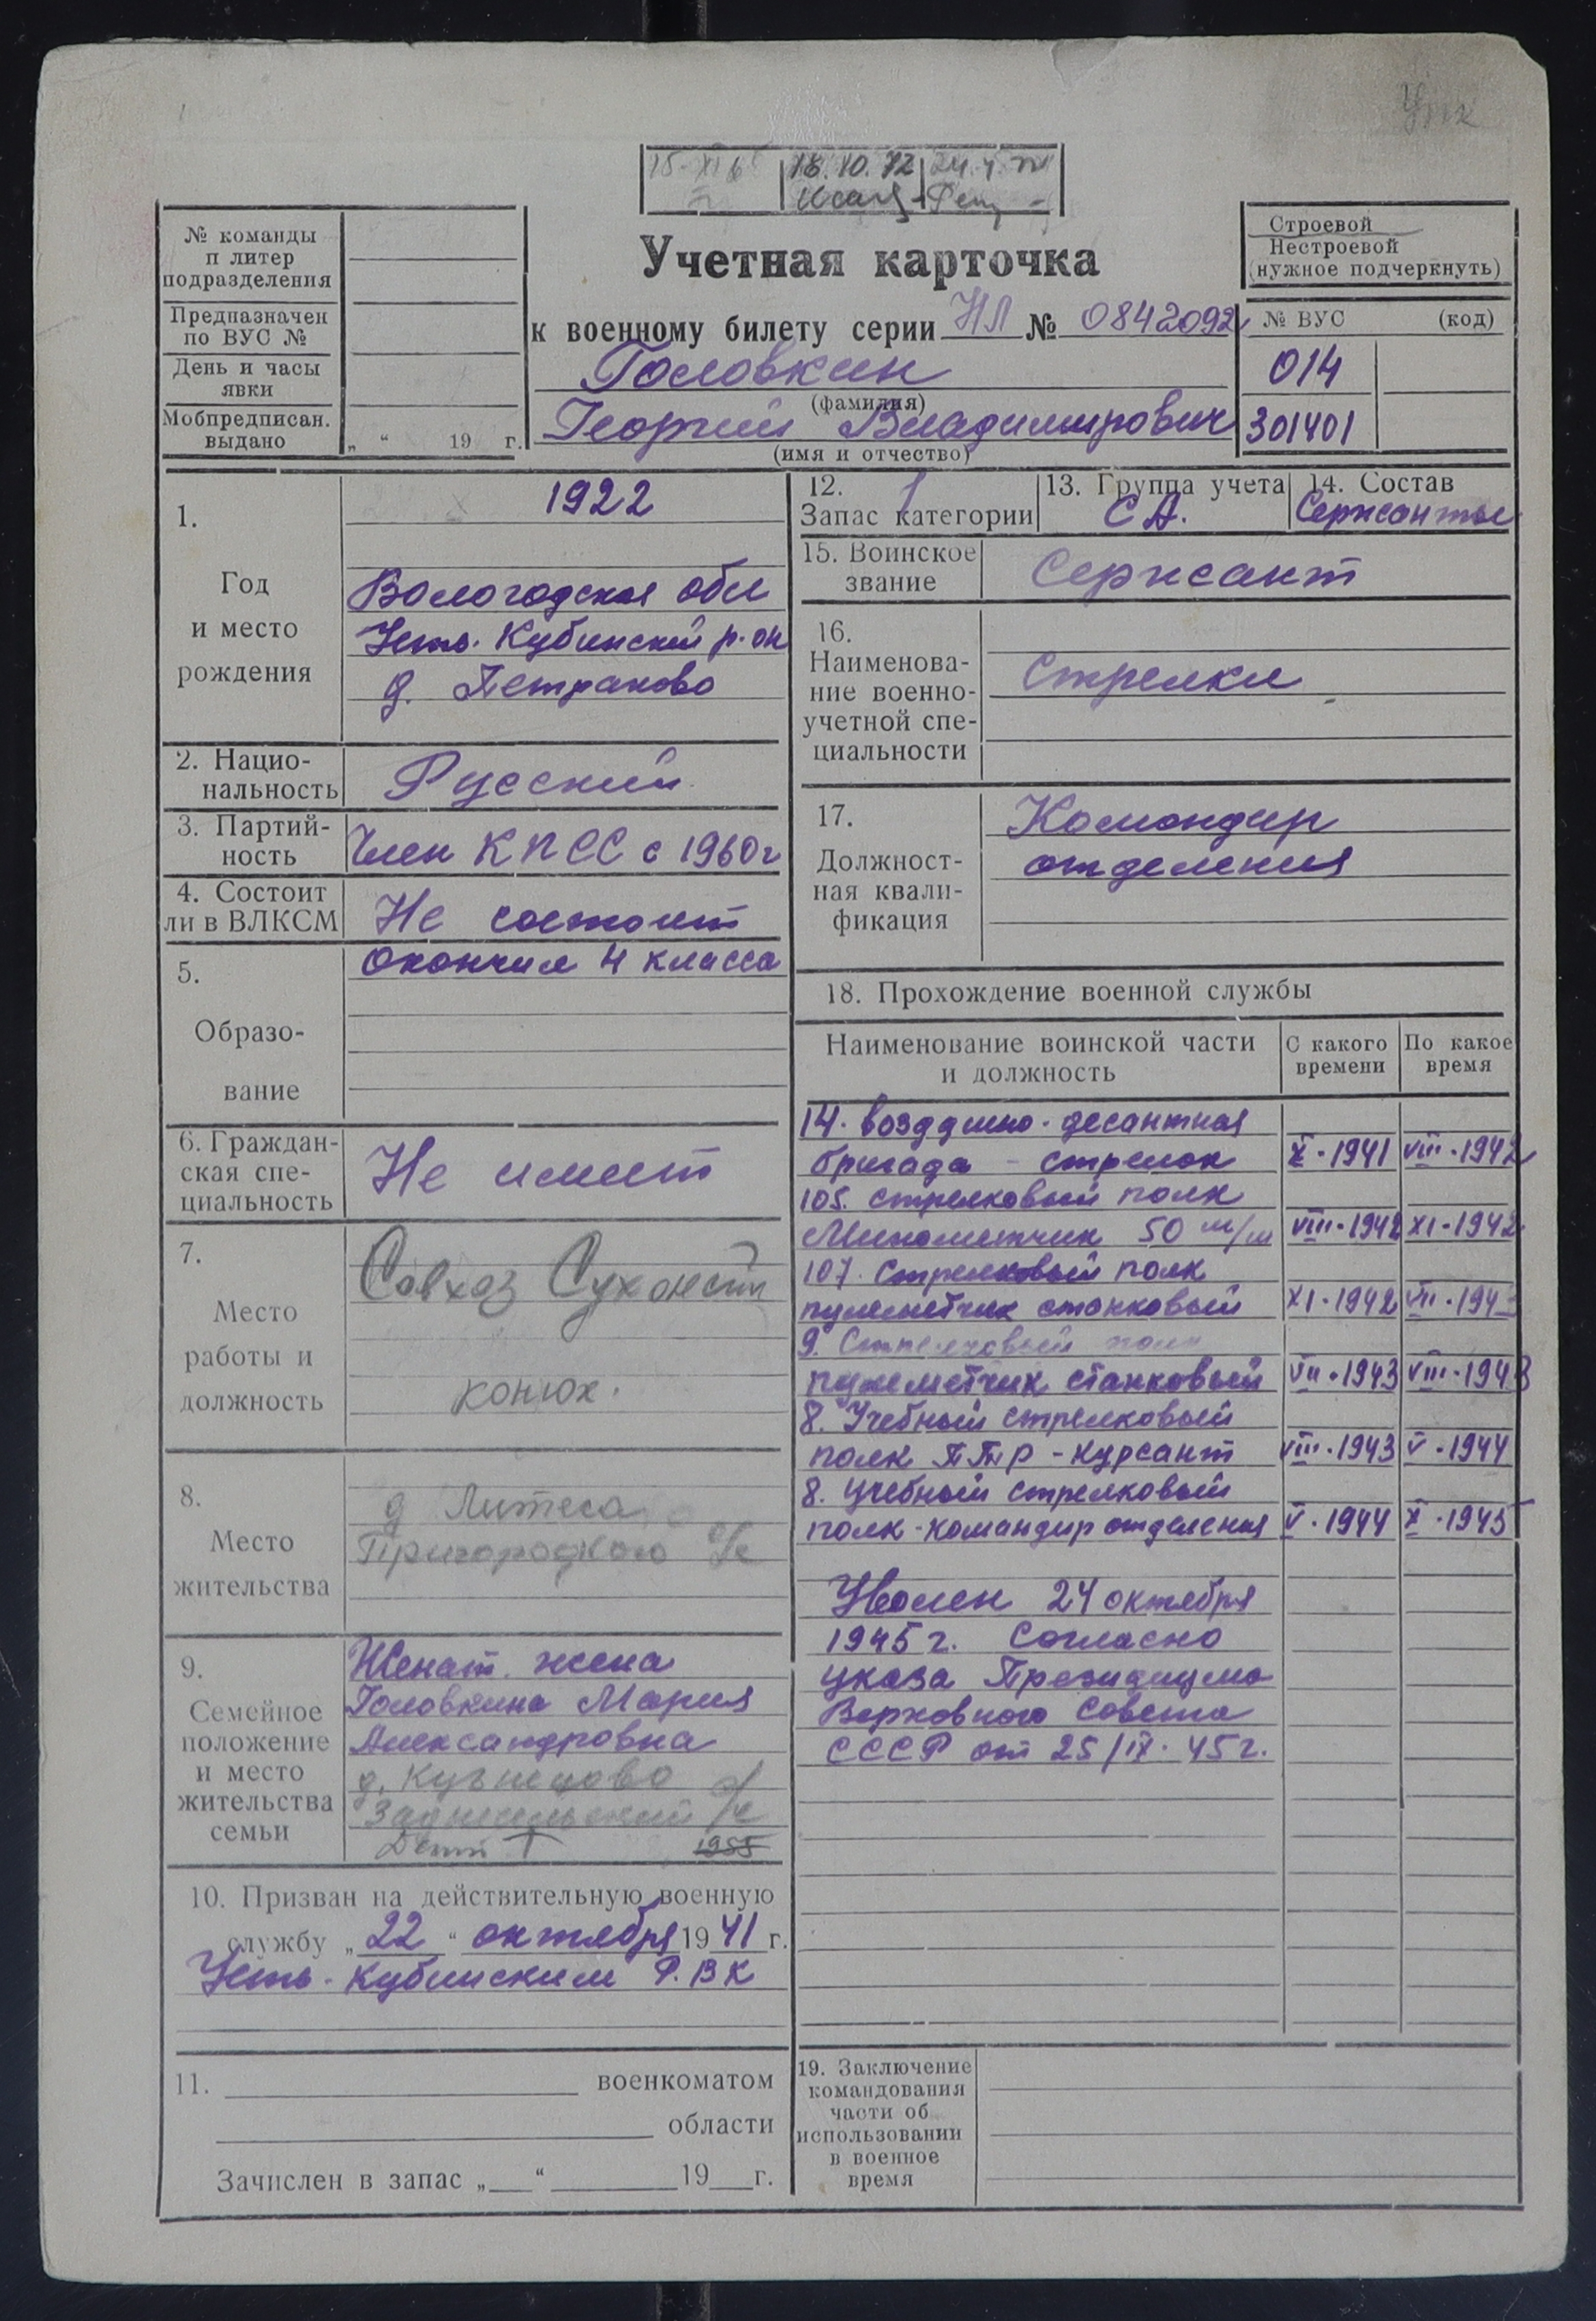 18.10.72
Строевой
Нестроевой
(нужное подчеркнуть)
№ команды
п литер
подразделения
Предназначен
по ВУС №
День и часы
явки
Мобпредписан.
выдано
„ “ 19 г.
Учетная карточка
к военному билету серии НЛ № 0842092
Головкин
(фамилия)
Георгий Владимирович
(имя и отчество)
№ ВУС (код)
014
301401
1.
Год
и место
рождения
1922
Вологодская обл
Усть-Кубинский р-он
д. Петраково
2. Нацио-
нальность
Русский
3. Партий-
ность
Член КПСС с 1960г
4. Состоит
ли в ВЛКСМ
Не состоит
5.
Образо-
вание
Окончил 4 класса
6. Граждан-
ская спе-
циальность
Не имеет
7.
Место
работы и
должность
Совхоз
конюх.
8.
Место
жительства
д
Пригородного с/с
9.
Семейное
положение
и место
жительства
семьи
Женат. жена
Головкина Мария
Александровна
д.
с/с
1955
10. Призван на действительную военную
службу „22“ октября 1941 г.
Усть-Кубинским Р.ВК
11. военкоматом
области
Зачислен в запас „ “ 19 г.
12. 1
Запас категории
13. Группа учета
СА.
14. Состав
Сержанты
15. Воинское
звание
Сержант
16.
Наименова-
ние военно-
учетной спе-
циальности
Стрелки
17.
Должност-
ная квали-
фикация
Командир
отделения
18. Прохождение военной службы
Наименование воинской части
и должность
С какого
времени
По какое
время
14. воздушно-десантная
бригада - стрелок X-1941 VIII-1942
105. стрелковый полк
Минометчик 50 м/м VIII-1942 XI-1942
107. Стрелковый полк
пулеметчик станковый XI-1942 VII-1943
9. Стрелковый полк
пулеметчик станковый VII-1943 VIII-1943
8. Учебный стрелковый
полк ПТР - курсант VIII-1943 V-1944
8. Учебный стрелковый
полк-командир отделения V-1944 X-1945
Уволен 24 октября
1945 г. Согласно
указа Президиума
Верховного Совета
СССР от 25/IX-45 г.
19. Заключение
командования
части об
использовании
в военное
время